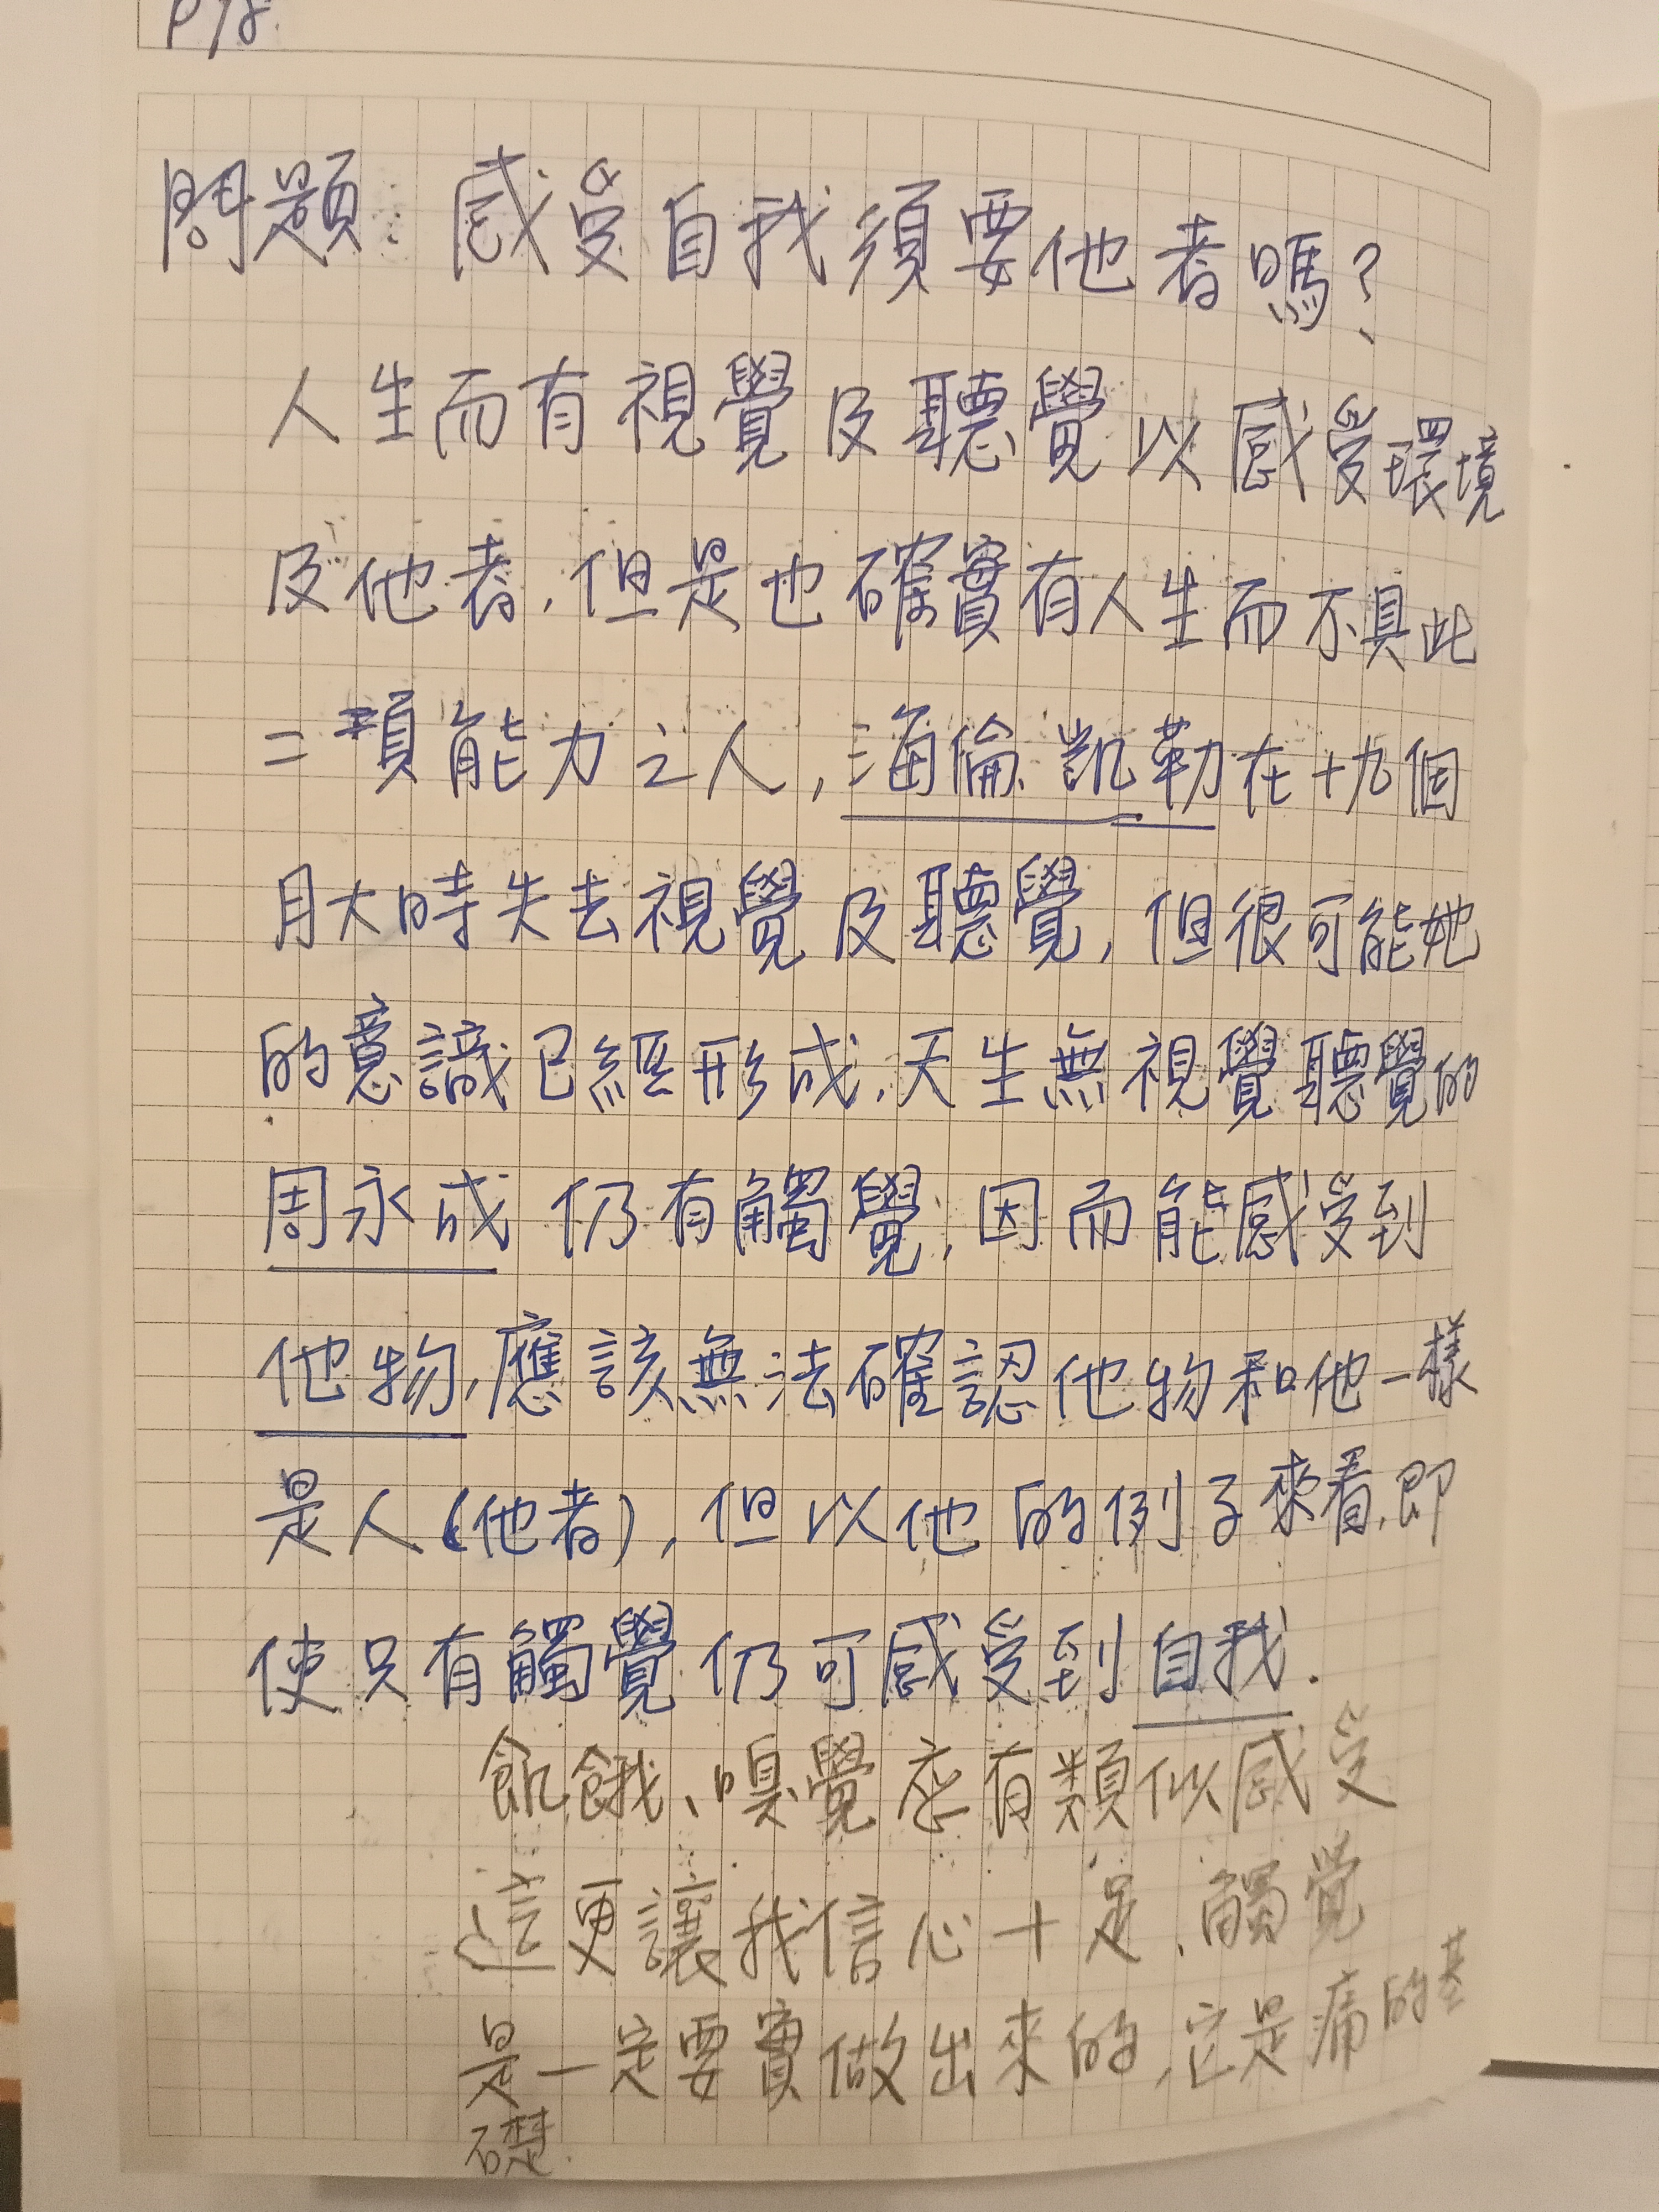 P98.
問題：感受自我須要他者嗎？
人生而有視覺及聽覺以感受環境
及他者，但是也確實有人生而不具此
二項能力之人，海倫、凱勒在十九個
月大時失去視覺及聽覺，但很可能她
的意識已經形成，天生無視覺聽覺的
周永成仍有觸覺，因而能感受到
他物，應該無法確認他物和他一樣
是人（他者），但以他的例子來看，即
使只有觸覺仍可感受到自我．
飢餓、嗅覺應有類似感受
這更讓我信心十足、觸覺
是一定要實做出來的，它是痛的基
礎．